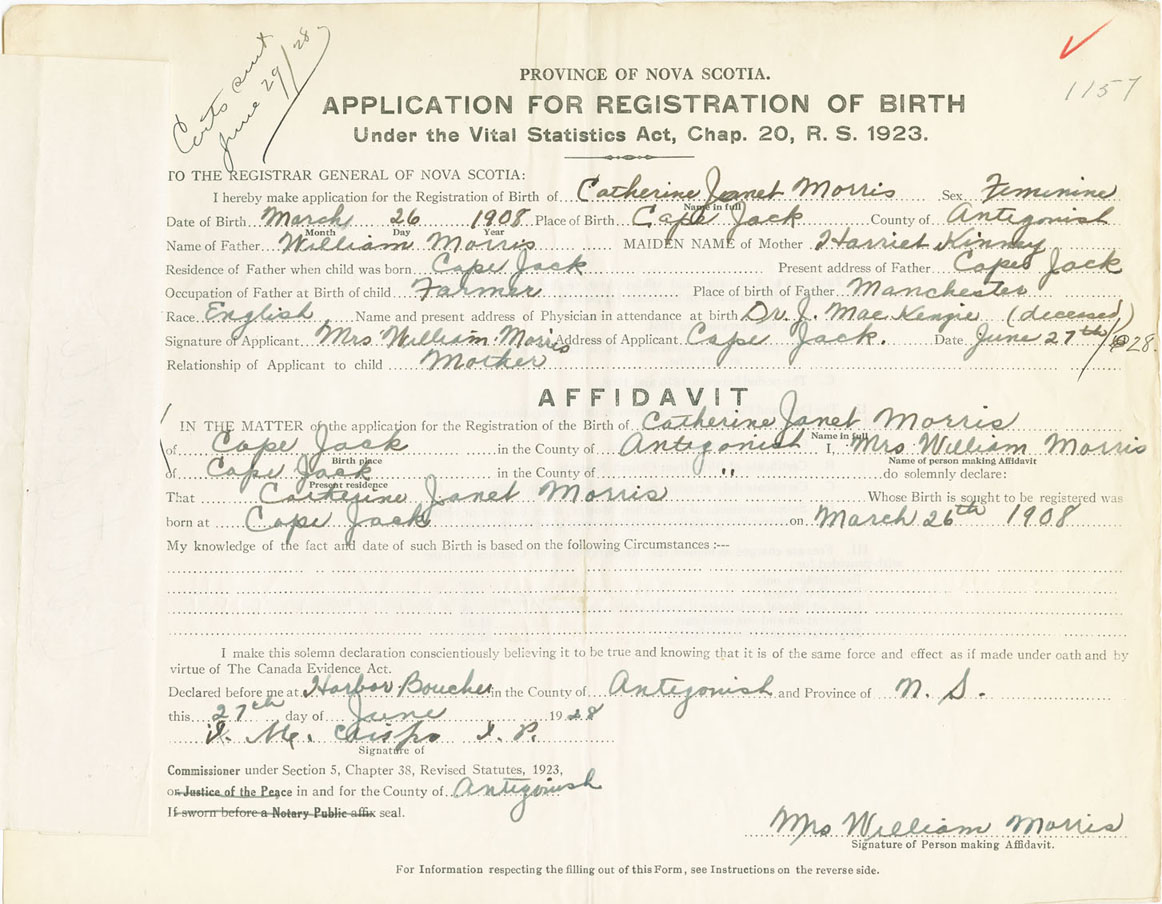 Certs sent
June 29/28
1157
PROVINCE OF NOVA SCOTIA.
APPLICATION FOR REGISTRATION OF BIRTH
Under the Vital Statistics Act, Chap. 20, R. S. 1923.
TO THE REGISTRAR GENERAL OF NOVA SCOTIA:
I hereby make application for the Registration of Birth of Catherine Janet Morris Sex Feminine
Name in full
Date of Birth March 26 1908 Place of Birth Cape Jack County of Antigonish
Month Day Year
Name of Father William Morris MAIDEN NAME of Mother Harriet Kinney
Residence of Father when child was born Cape Jack Present address of Father Cape Jack
Occupation of Father at Birth of child Farmer Place of birth of Father Manchester
Race English Name and present address of Physician in attendance at birth Dr. J. MacKenzie (deceased)
Signature of Applicant Mrs. William Morris Address of Applicant Cape Jack. Date June 27th/28.
Relationship of Applicant to child Mother
AFFIDAVIT
IN THE MATTER of the application for the Registration of the Birth of Catherine Janet Morris
Name in full
of Cape Jack in the County of Antigonish I, Mrs William Morris
Birth place Name of person making Affidavit
of Cape Jack in the County of " do solemnly declare:
Present residence
That Catherine Janet Morris Whose Birth is sought to be registered was
born at Cape Jack on March 26th 1908
My knowledge of the fact and date of such Birth is based on the following Circumstances :---
I make this solemn declaration conscientiously believing it to be true and knowing that it is of the same force and effect as if made under oath and by
virtue of The Canada Evidence Act.
Declared before me at Harbor Boucher in the County of Antigonish and Province of N. S.
this 27th day of June 1928
Crispo J. P.
Signature of
Commissioner under Section 5, Chapter 38, Revised Statutes, 1923,
or Justice of the Peace in and for the County of Antigonish
If sworn before a Notary Public affix seal.
Mrs William Morris
Signature of Person making Affidavit.
For Information respecting the filling out of this Form, see Instructions on the reverse side.